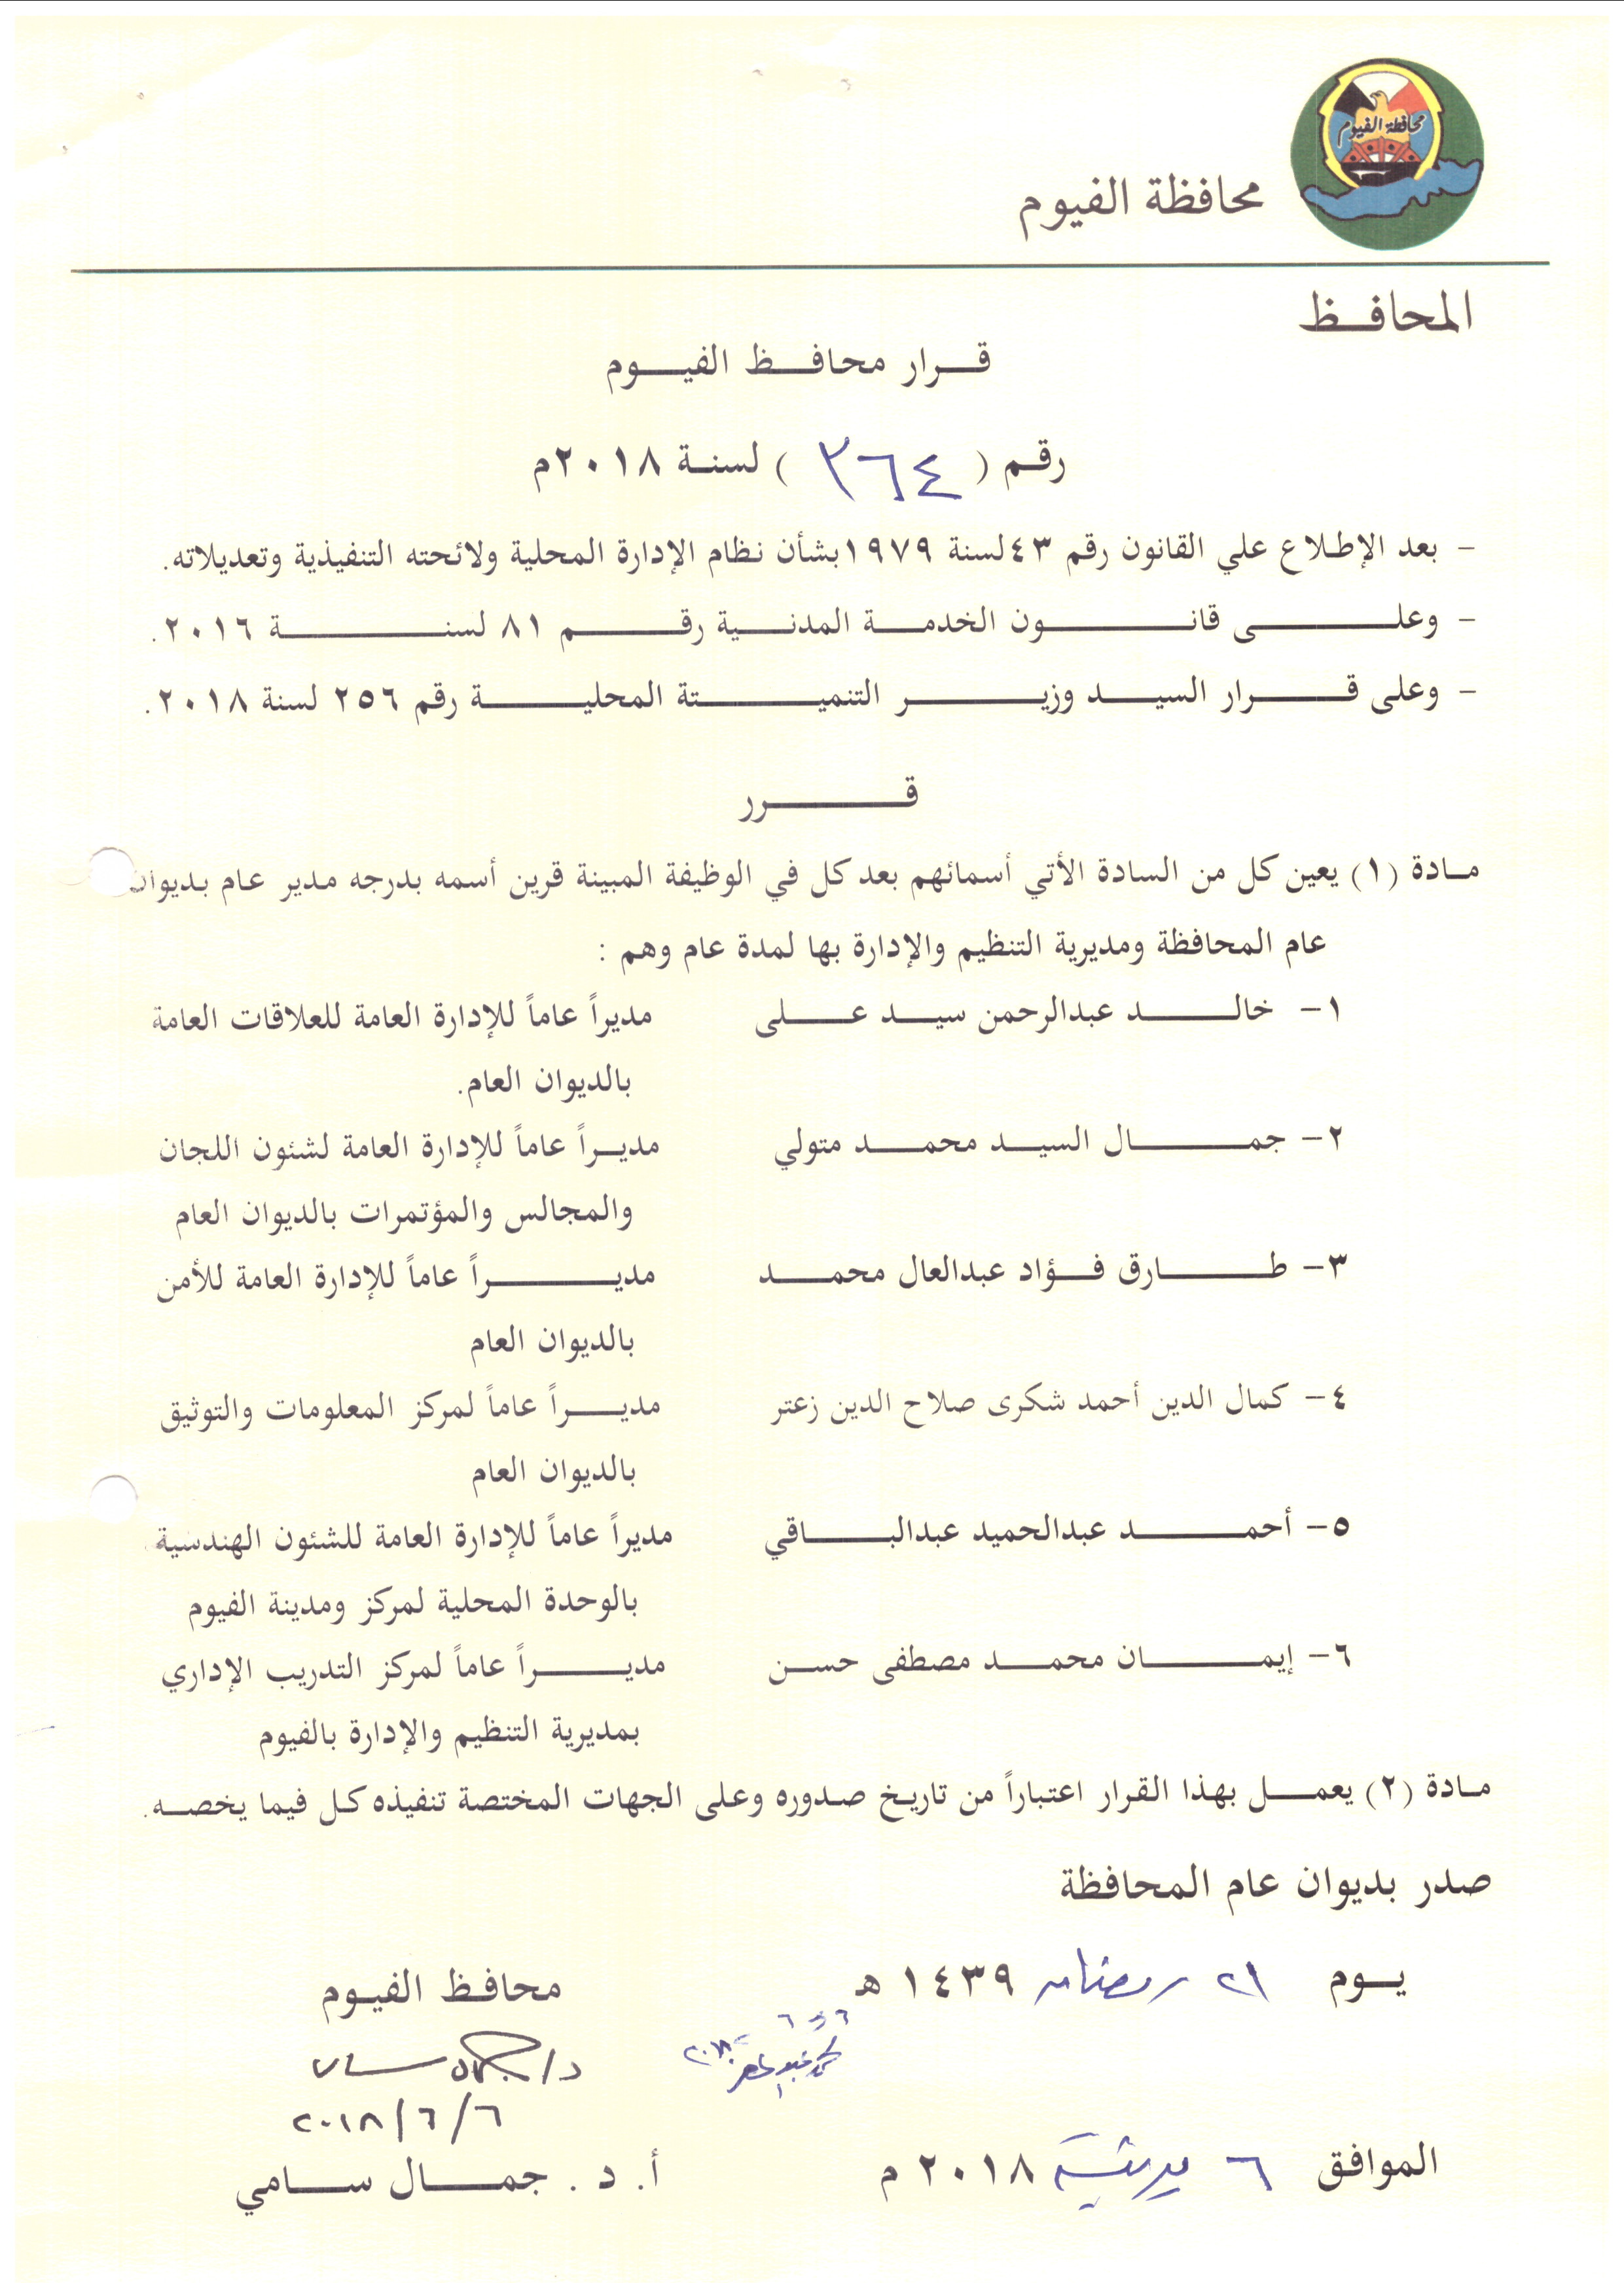 محافظة الفيوم
محافظة الفيوم
المحافظ
قرار محافظ الفيوم
رقم ( ٣٦٤ ) لسنة ٢٠١٨م
- بعد الإطلاع علي القانون رقم ٤٣ لسنة ١٩٧٩ بشأن نظام الإدارة المحلية ولائحته التنفيذية وتعديلاته.
- وعلى قانون الخدمة المدنية رقم ٨١ لسنة ٢٠١٦.
- وعلى قرار السيد وزير التنميتة المحلية رقم ٢٥٦ لسنة ٢٠١٨.
قرر
مادة (١) يعين كل من السادة الأتي أسمائهم بعد كل في الوظيفة المبينة قرين أسمه بدرجه مدير عام بديوان
عام المحافظة ومديرية التنظيم والإدارة بها لمدة عام وهم :
١- خالد عبدالرحمن سيد على مديراً عاماً للإدارة العامة للعلاقات العامة
بالديوان العام.
٢- جمال السيد محمد متولي مديراً عاماً للإدارة العامة لشئون اللجان
والمجالس والمؤتمرات بالديوان العام
٣- طارق فؤاد عبدالعال محمد مديراً عاماً للإدارة العامة للأمن
بالديوان العام
٤- كمال الدين أحمد شكرى صلاح الدين زعتر مديراً عاماً لمركز المعلومات والتوثيق
بالديوان العام
٥- أحمد عبدالحميد عبدالباقي مديراً عاماً للإدارة العامة للشئون الهندسية
بالوحدة المحلية لمركز ومدينة الفيوم
٦- إيمان محمد مصطفى حسن مديراً عاماً لمركز التدريب الإداري
بمديرية التنظيم والإدارة بالفيوم
مادة (٢) يعمل بهذا القرار اعتباراً من تاريخ صدوره وعلى الجهات المختصة تنفيذه كل فيما يخصه.
صدر بديوان عام المحافظة
يوم ٢١ رمضان ١٤٣٩ هـ
محافظ الفيوم
٢٠١٨/٦/٦
الموافق ٦ يونية ٢٠١٨ م
أ. د . جمال سامي